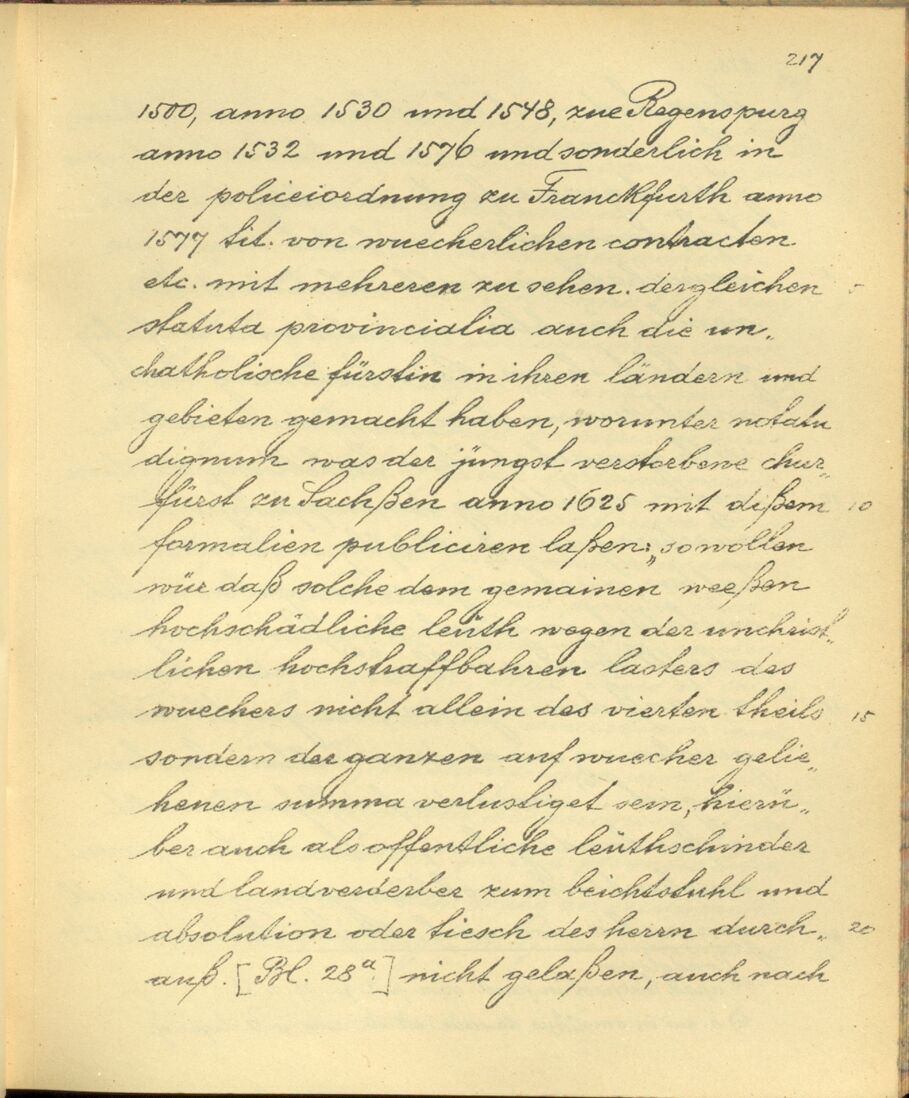 217
1500, anno 1530 und 1548, zue Regenspurg
anno 1532 und 1576 und sonderlich in
der policeiordnung zu Franckfurth anno
1577 tit. von wuecherlichen contracten
etc. mit mehreren zu sehen. dergleichen 5
statuta provincialia auch die un„
chatholische fürstin in ihren ländern und
gebieten gemacht haben, worunter notatu
dignum was der jüngst verstorbene chur„
fürst zu Sachßen anno 1625 mit dißem 10
formalien publiciren laßen: „so wollen
wür daß solche dem gemainen weeßen
hochschädliche leüth wegen der unchrist„
lichen hochstraffbahren lasters des
wuechers nicht allein des vierten theils 15
sondern der ganzen auf wuecher gelie„
henen summa verlustiget sein, hierü„
ber auch als offentliche leüthschinder
und landverderber zum beichtstuhl und
absolution oder tiesch des herrn durch„ 20
auß. [Bl. 28a] nicht gelaßen, auch nach